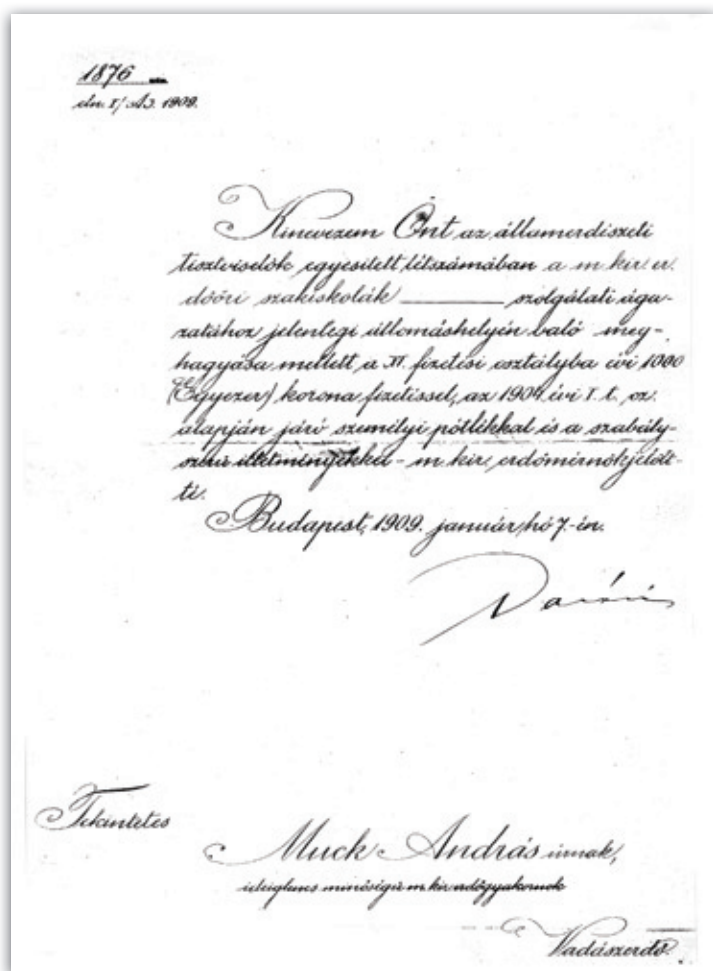 1876
eln. I/A3. 1909.
Kinevezem Önt az államerdészeti
tisztviselők egyesített létszámában a m. kir. er-
dőőri szakiskolák szolgálati ága-
zatához jelenlegi állomáshelyén való meg-
hagyása mellett a XI. fizetési osztályba évi 1000
(Egyezer) korona fizetéssel, az 1904. évi I. t. cz.
alapján járó személyi pótlékkal és a szabály-
szerű illetményekkel m. kir. erdőmérnökjelölt-
té.
Budapest, 1909. január hó 7-én.
Darányi
Tekintetes
Muck András úrnak,
ideiglenes minőségű m. kir. erdőgyakornok
Vadászerdő.